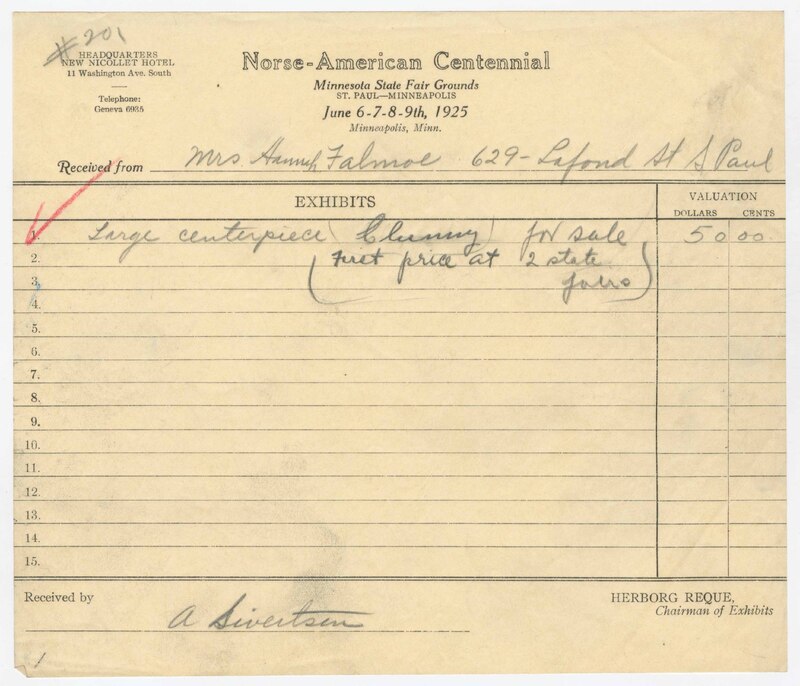 #201
HEADQUARTERS
NEW NICOLLET HOTEL
11 Washington Ave. South
Telephone:
Geneva 6935
Norse-American Centennial
Minnesota State Fair Grounds
ST. PAUL—MINNEAPOLIS
June 6-7-8-9th, 1925
Minneapolis, Minn.
Received from Mrs Hannah Falmoe 629- Lafond St S Paul
EXHIBITS VALUATION
DOLLARS CENTS
1. Large centerpiece (Clunny) for sale 50 00
2. (First price at 2 state
3. fairs)
4.
5.
6.
7.
8.
9.
10.
11.
12.
13.
14.
15.
Received by A Sivertsen
HERBORG REQUE,
Chairman of Exhibits
1